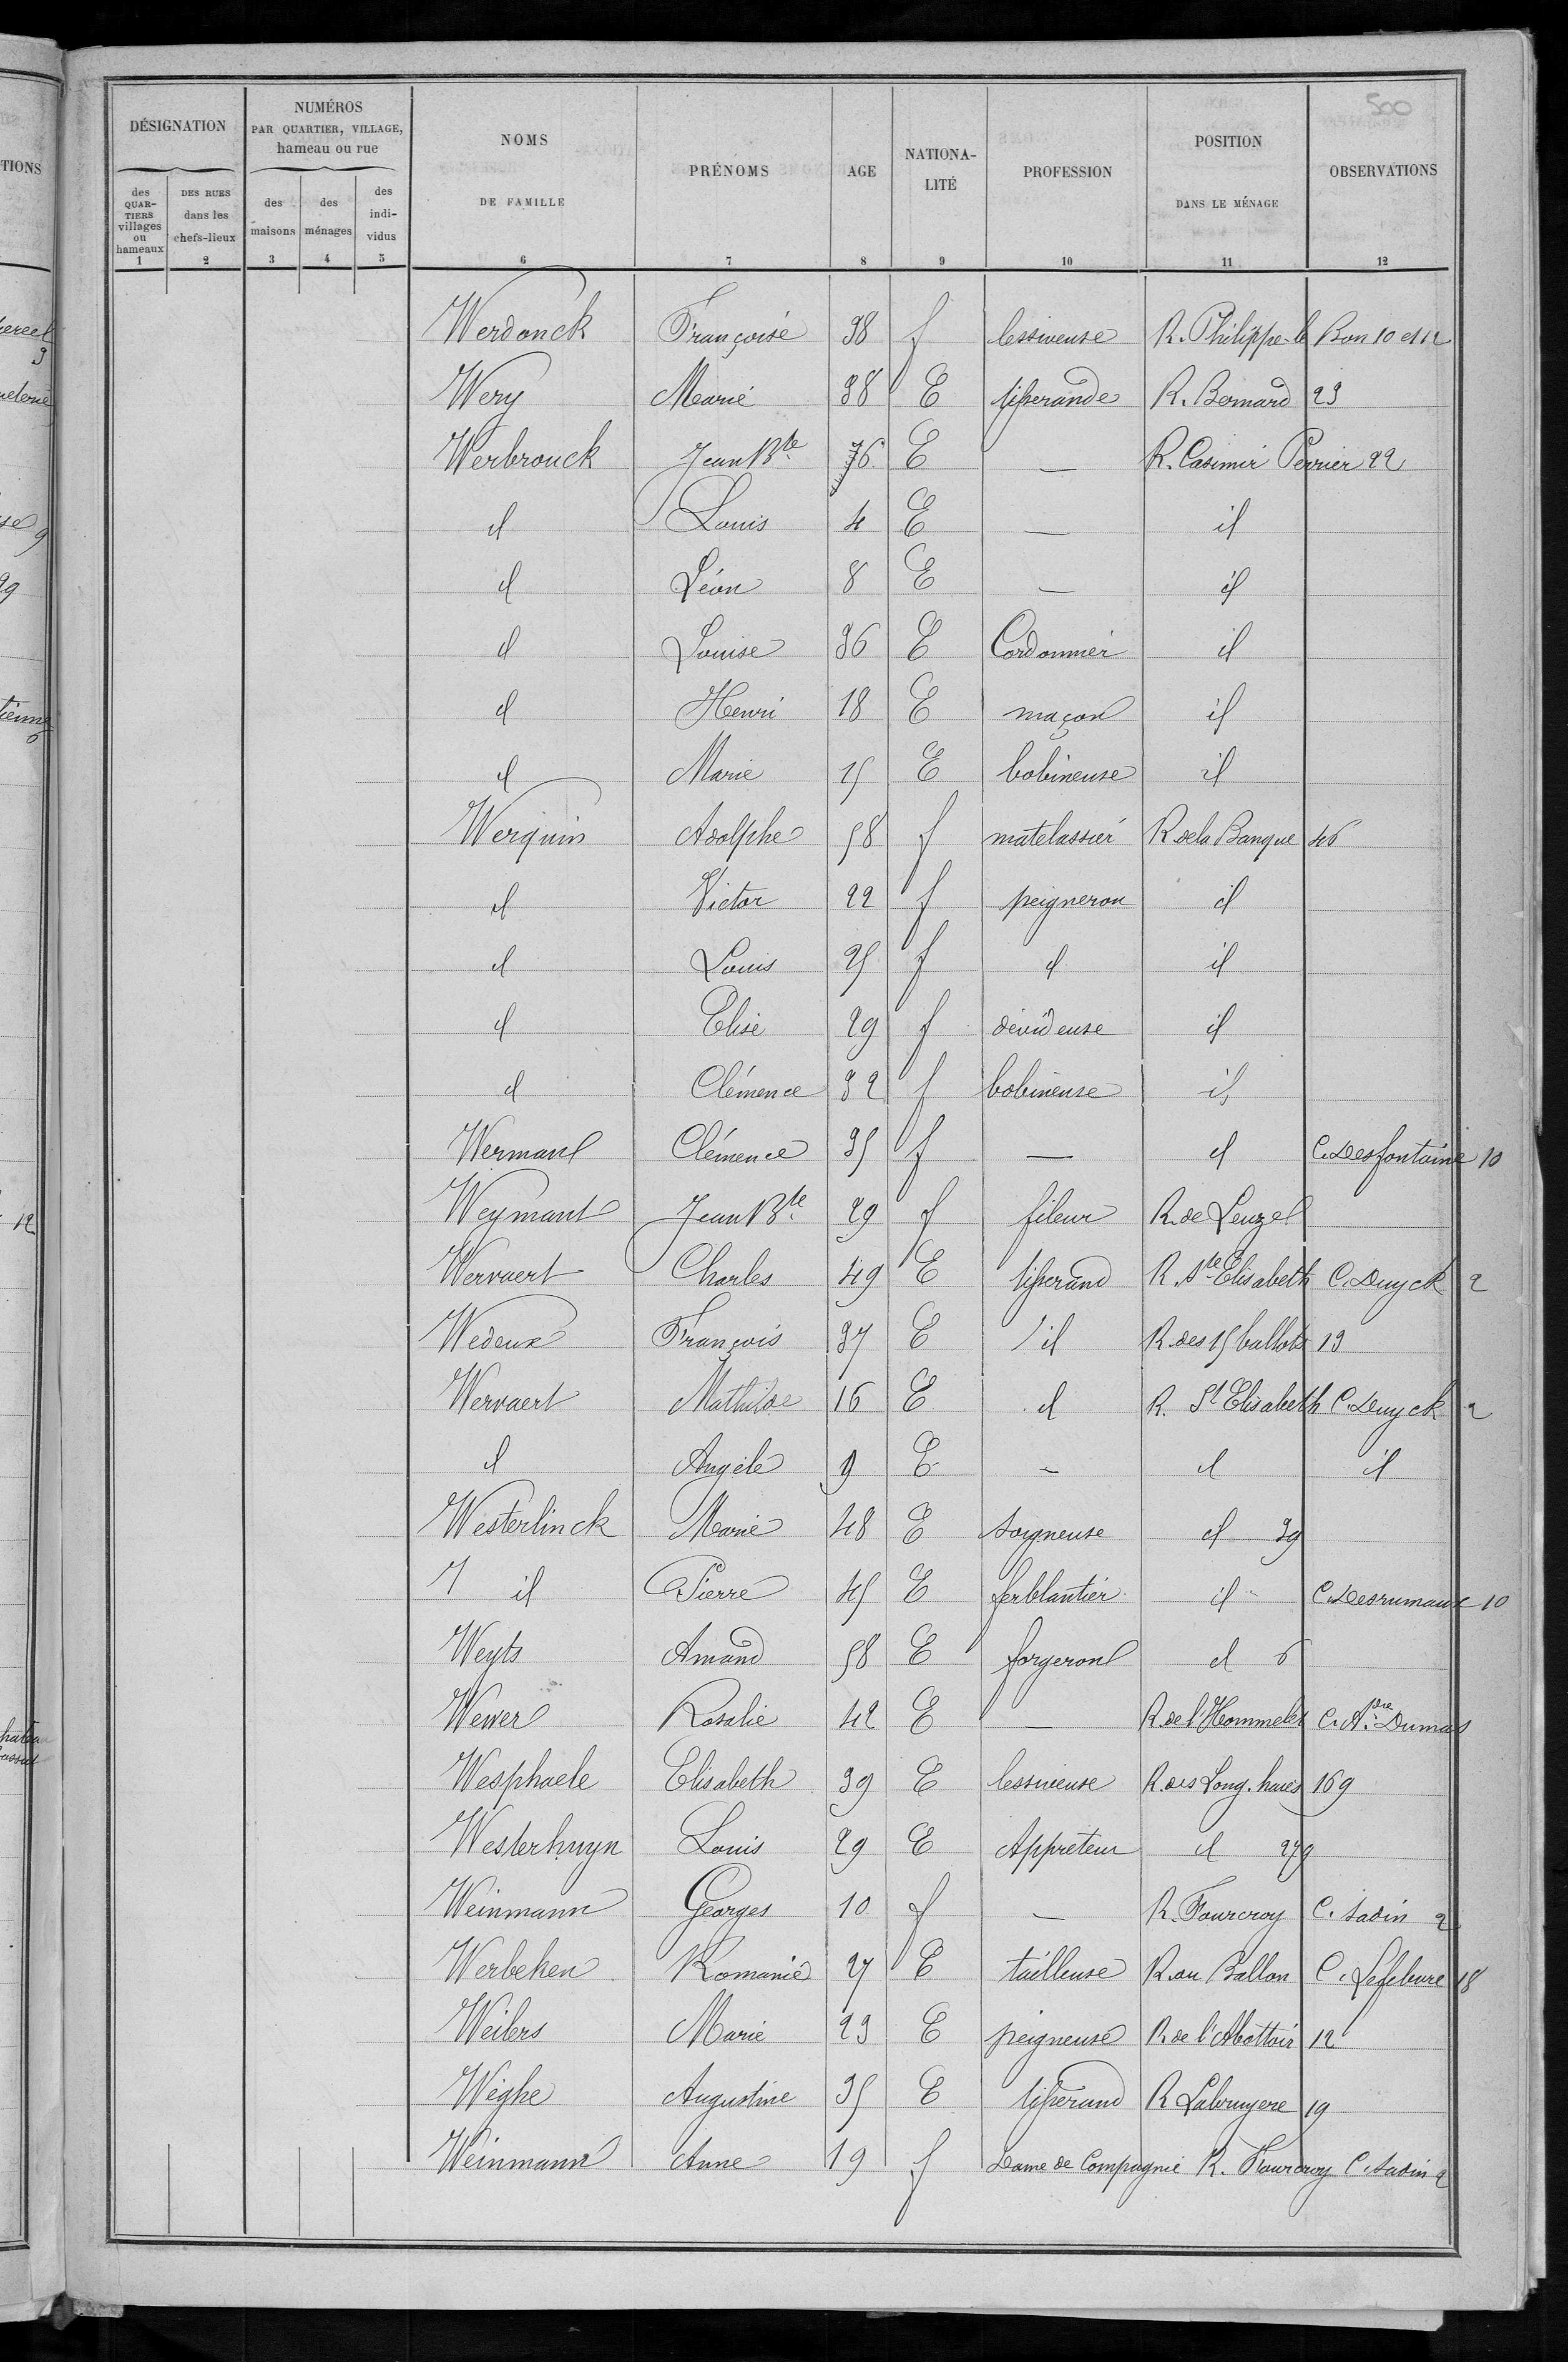 500
DÉSIGNATION NUMÉROS PAR QUARTIER, VILLAGE, hameau ou rue NOMS DE FAMILLE PRÉNOMS AGE NATIONA-LITÉ PROFESSION POSITION DANS LE MÉNAGE OBSERVATIONS
des QUAR-TIERS villages ou hameaux DES RUES dans les chefs-lieux des maisons des ménages des indi-vidus
1 2 3 4 5 6 7 8 9 10 11 12
Werdonck Françoise 38 f lessiveuse R. Philippe-le Bon 10 et 12
Wery Marie 38 E tisserande R. Bernard 23
Werbrouck Jean Bte 76 E — R. Casimir Perrier 22
id Louis 4 E — id
id Léon 8 E — id
id Louise 36 E Cordonnier id
id Henri 18 E maçon id
id Marie 15 E bobineuse id
Werquin Adolphe 58 f matelassier R de la Banque 46
id Victor 22 f peigneron id
id Louis 25 f id id
id Elise 29 f dévideuse id
id Clémence 32 f bobineuse id
Werman Clémence 35 f — id C. Desfontaine 10
Weymant Jean Bte 29 f fileur R. de Leuze
Wervaert Charles 49 E tisserand R. Ste Elisabeth C. Duyck 2
Wedeux François 37 E id R. des 15 ballots 13
Wervaert Mathilde 16 E id R. St Elisabeth C. Duyck 2
id Angèle 9 E — id id
Westerlinck Marie 48 E soigneuse id 39
id Pierre 45 E ferblantier id C. Desrumaux 10
Weyts Amand 58 E forgeron id 6
Wewer Rosalie 42 E — R. de l'Hommelet C. Adre Dumas
Wesphaele Elisabeth 39 E lessiveuse R. des Long. haies 169
Westerhuyn Louis 29 E Appreteur id 279
Weinmann Georges 10 f — R. Fourcroy C. Sadin 2
Werbeken Romanie 27 E tailleuse R. du Ballon C. Lefebvre 18
Weilers Marie 23 E peigneuse R. de l'Abattoir 12
Wéghe Augustine 35 E tisserand R Labruyere 19
Weinmann Anne 19 f Dame de Compagnie R. Fourcroy C. Sadin 2